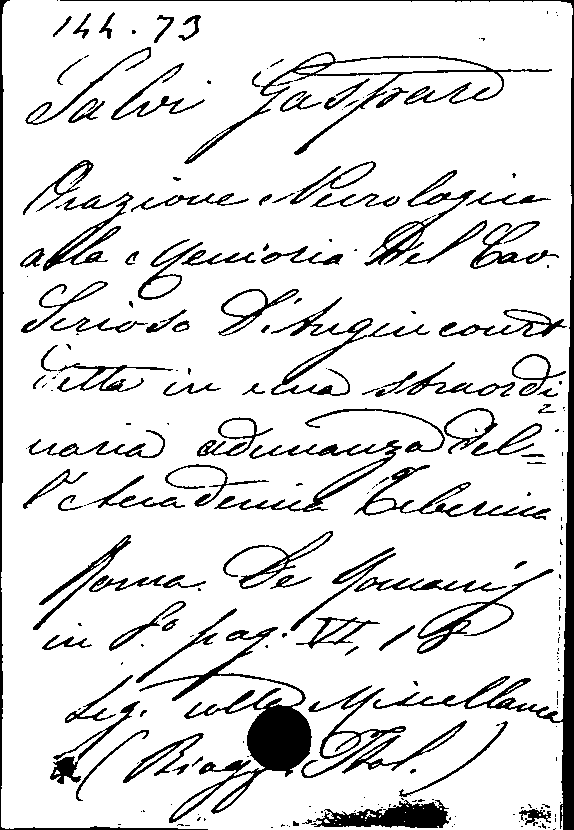 144.73
Salvi Gaspare
Orazione Necrologica
alla Memoria Del Cav.
Serioso D'Angincourt
detta in una straordi=
naria adunanza Del=
l'Accademia Tiberina
Roma. De Romanis
in 8.º pag. VI, 18
Leg. colla Miscellanea
(Biogr. Ital.)